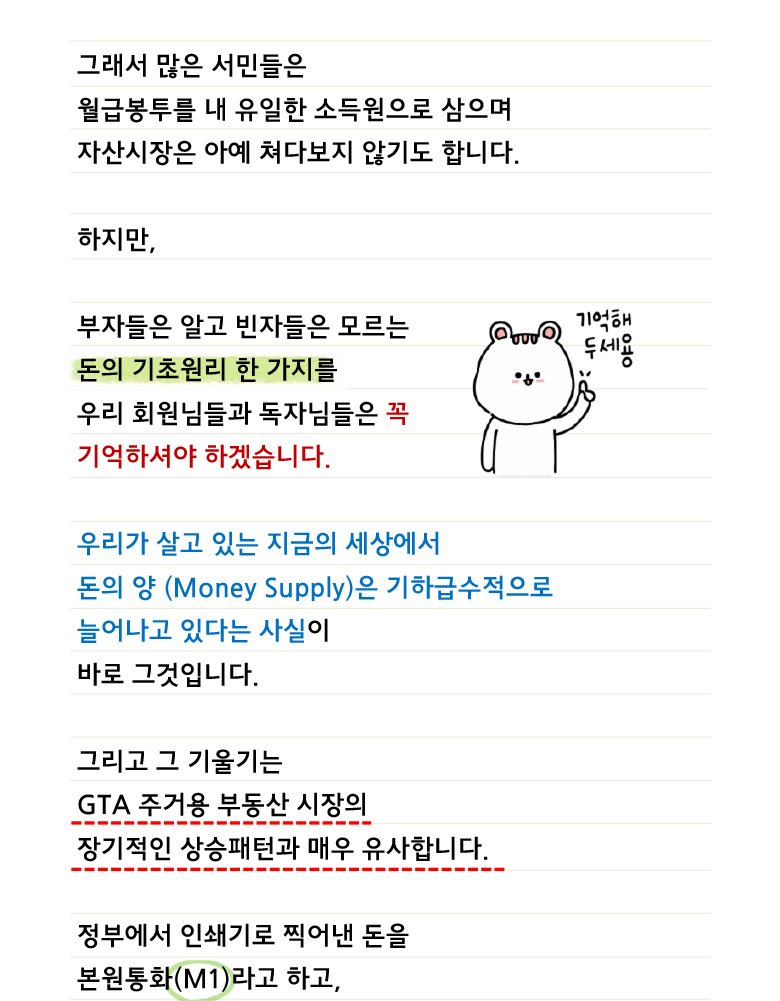 그래서 많은 서민들은
월급봉투를 내 유일한 소득원으로 삼으며
자산시장은 아예 쳐다보지 않기도 합니다.
하지만,
부자들은 알고 빈자들은 모르는
돈의 기초원리 한 가지를
우리 회원님들과 독자님들은 꼭
기억하셔야 하겠습니다.
기억해
두세용
우리가 살고 있는 지금의 세상에서
돈의 양 (Money Supply)은 기하급수적으로
늘어나고 있다는 사실이
바로 그것입니다.
그리고 그 기울기는
GTA 주거용 부동산 시장의
장기적인 상승패턴과 매우 유사합니다.
정부에서 인쇄기로 찍어낸 돈을
본원통화(M1)라고 하고,